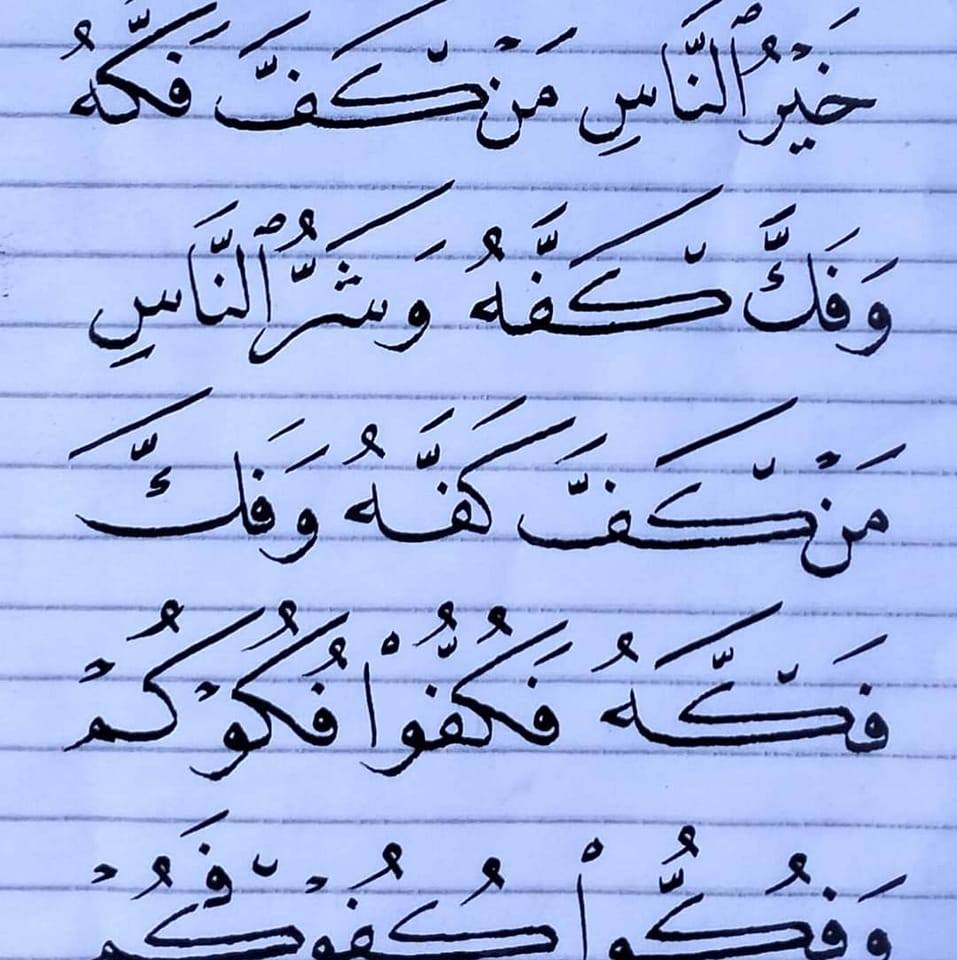 خَيْرُ ٱلنَّاسِ مَنْ كَفَّ فَكَّهُ
وَفَكَّ كَفَّهُ وَشَرُّ ٱلنَّاسِ
مَنْ كَفَّ كَفَّهُ وَفَكَّ
فَكَّهُ فَكُفُّوْا فُكُوْكُمْ
وَفُكُّوا كُفُوْفَكُمْ